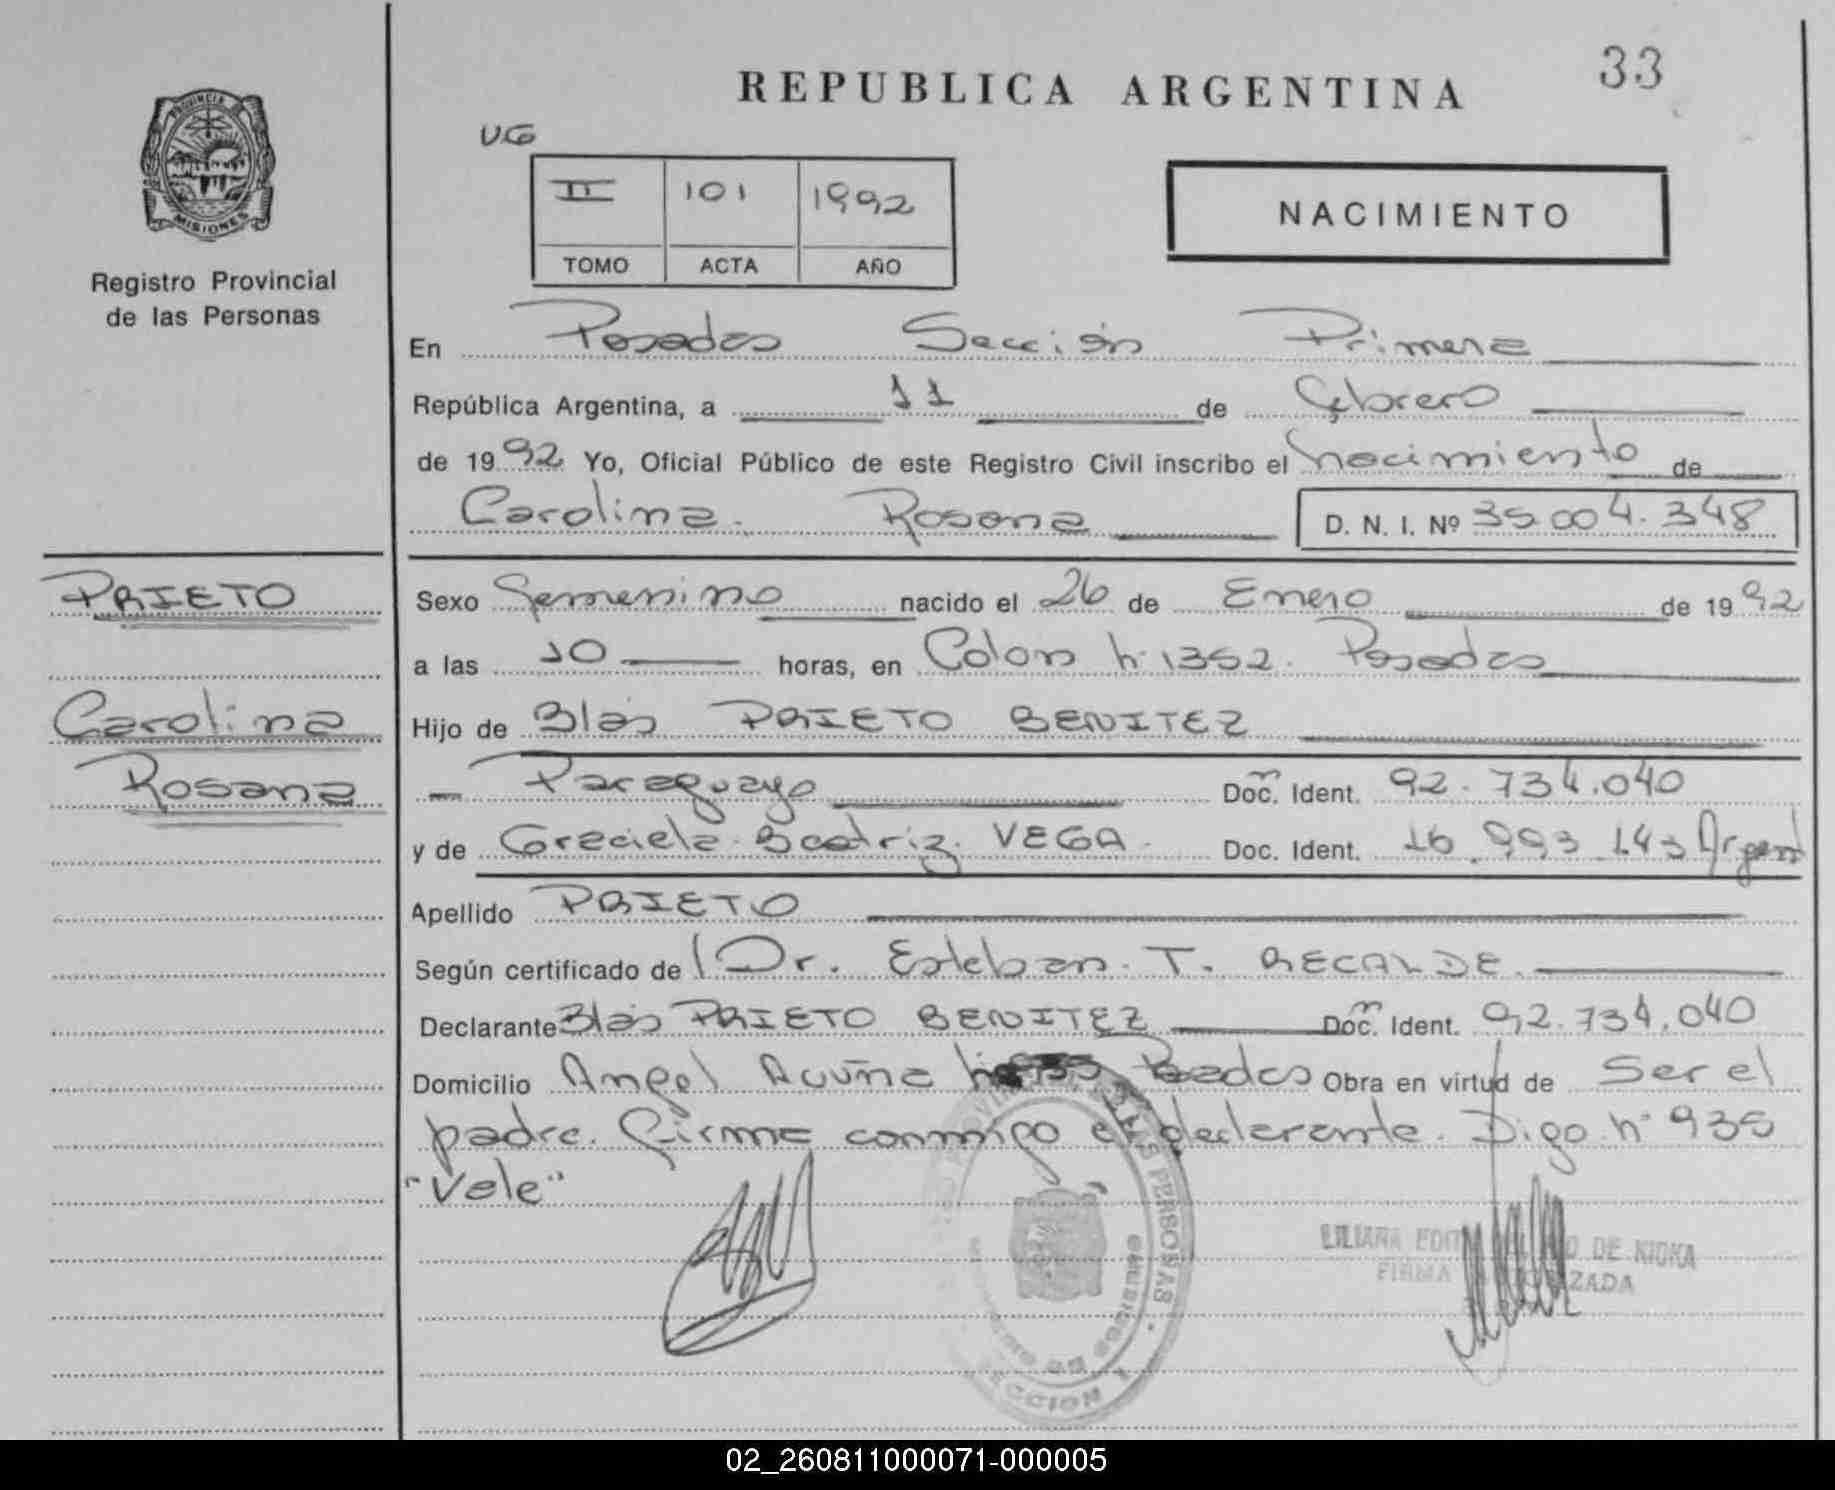 33
REPUBLICA ARGENTINA
PROVINCIA DE
MISIONES
Registro Provincial
de las Personas
UG
II 101 1992
TOMO ACTA AÑO
NACIMIENTO
En Posadas Sección Primera
República Argentina, a 11 de febrero
de 1992 Yo, Oficial Público de este Registro Civil inscribo el nacimiento de
Carolina Rosana D. N. I. Nº 35.004.348
PRIETO
Carolina
Rosana
Sexo femenino nacido el 26 de Enero de 1992
a las 10 horas, en Colon n. 1352. Posadas
Hijo de Blás PRIETO BENITEZ
— Paraguayo Doc. Ident. 92.734.040
y de Graciela Beatriz VEGA. Doc. Ident. 16.993.143 Argent
Apellido PRIETO
Según certificado de Dr. Esteban. T. RECALDE.
Declarante Blás PRIETO BENITEZ Doc. Ident. 92.734.040
Domicilio Angel Acuña Posadas Obra en virtud de Ser el
padre. Firma conmigo el declarante. Digo n° 935
"Vale"
LILIANA DE
FIRMA AUTORIZADA
02_260811000071-000005